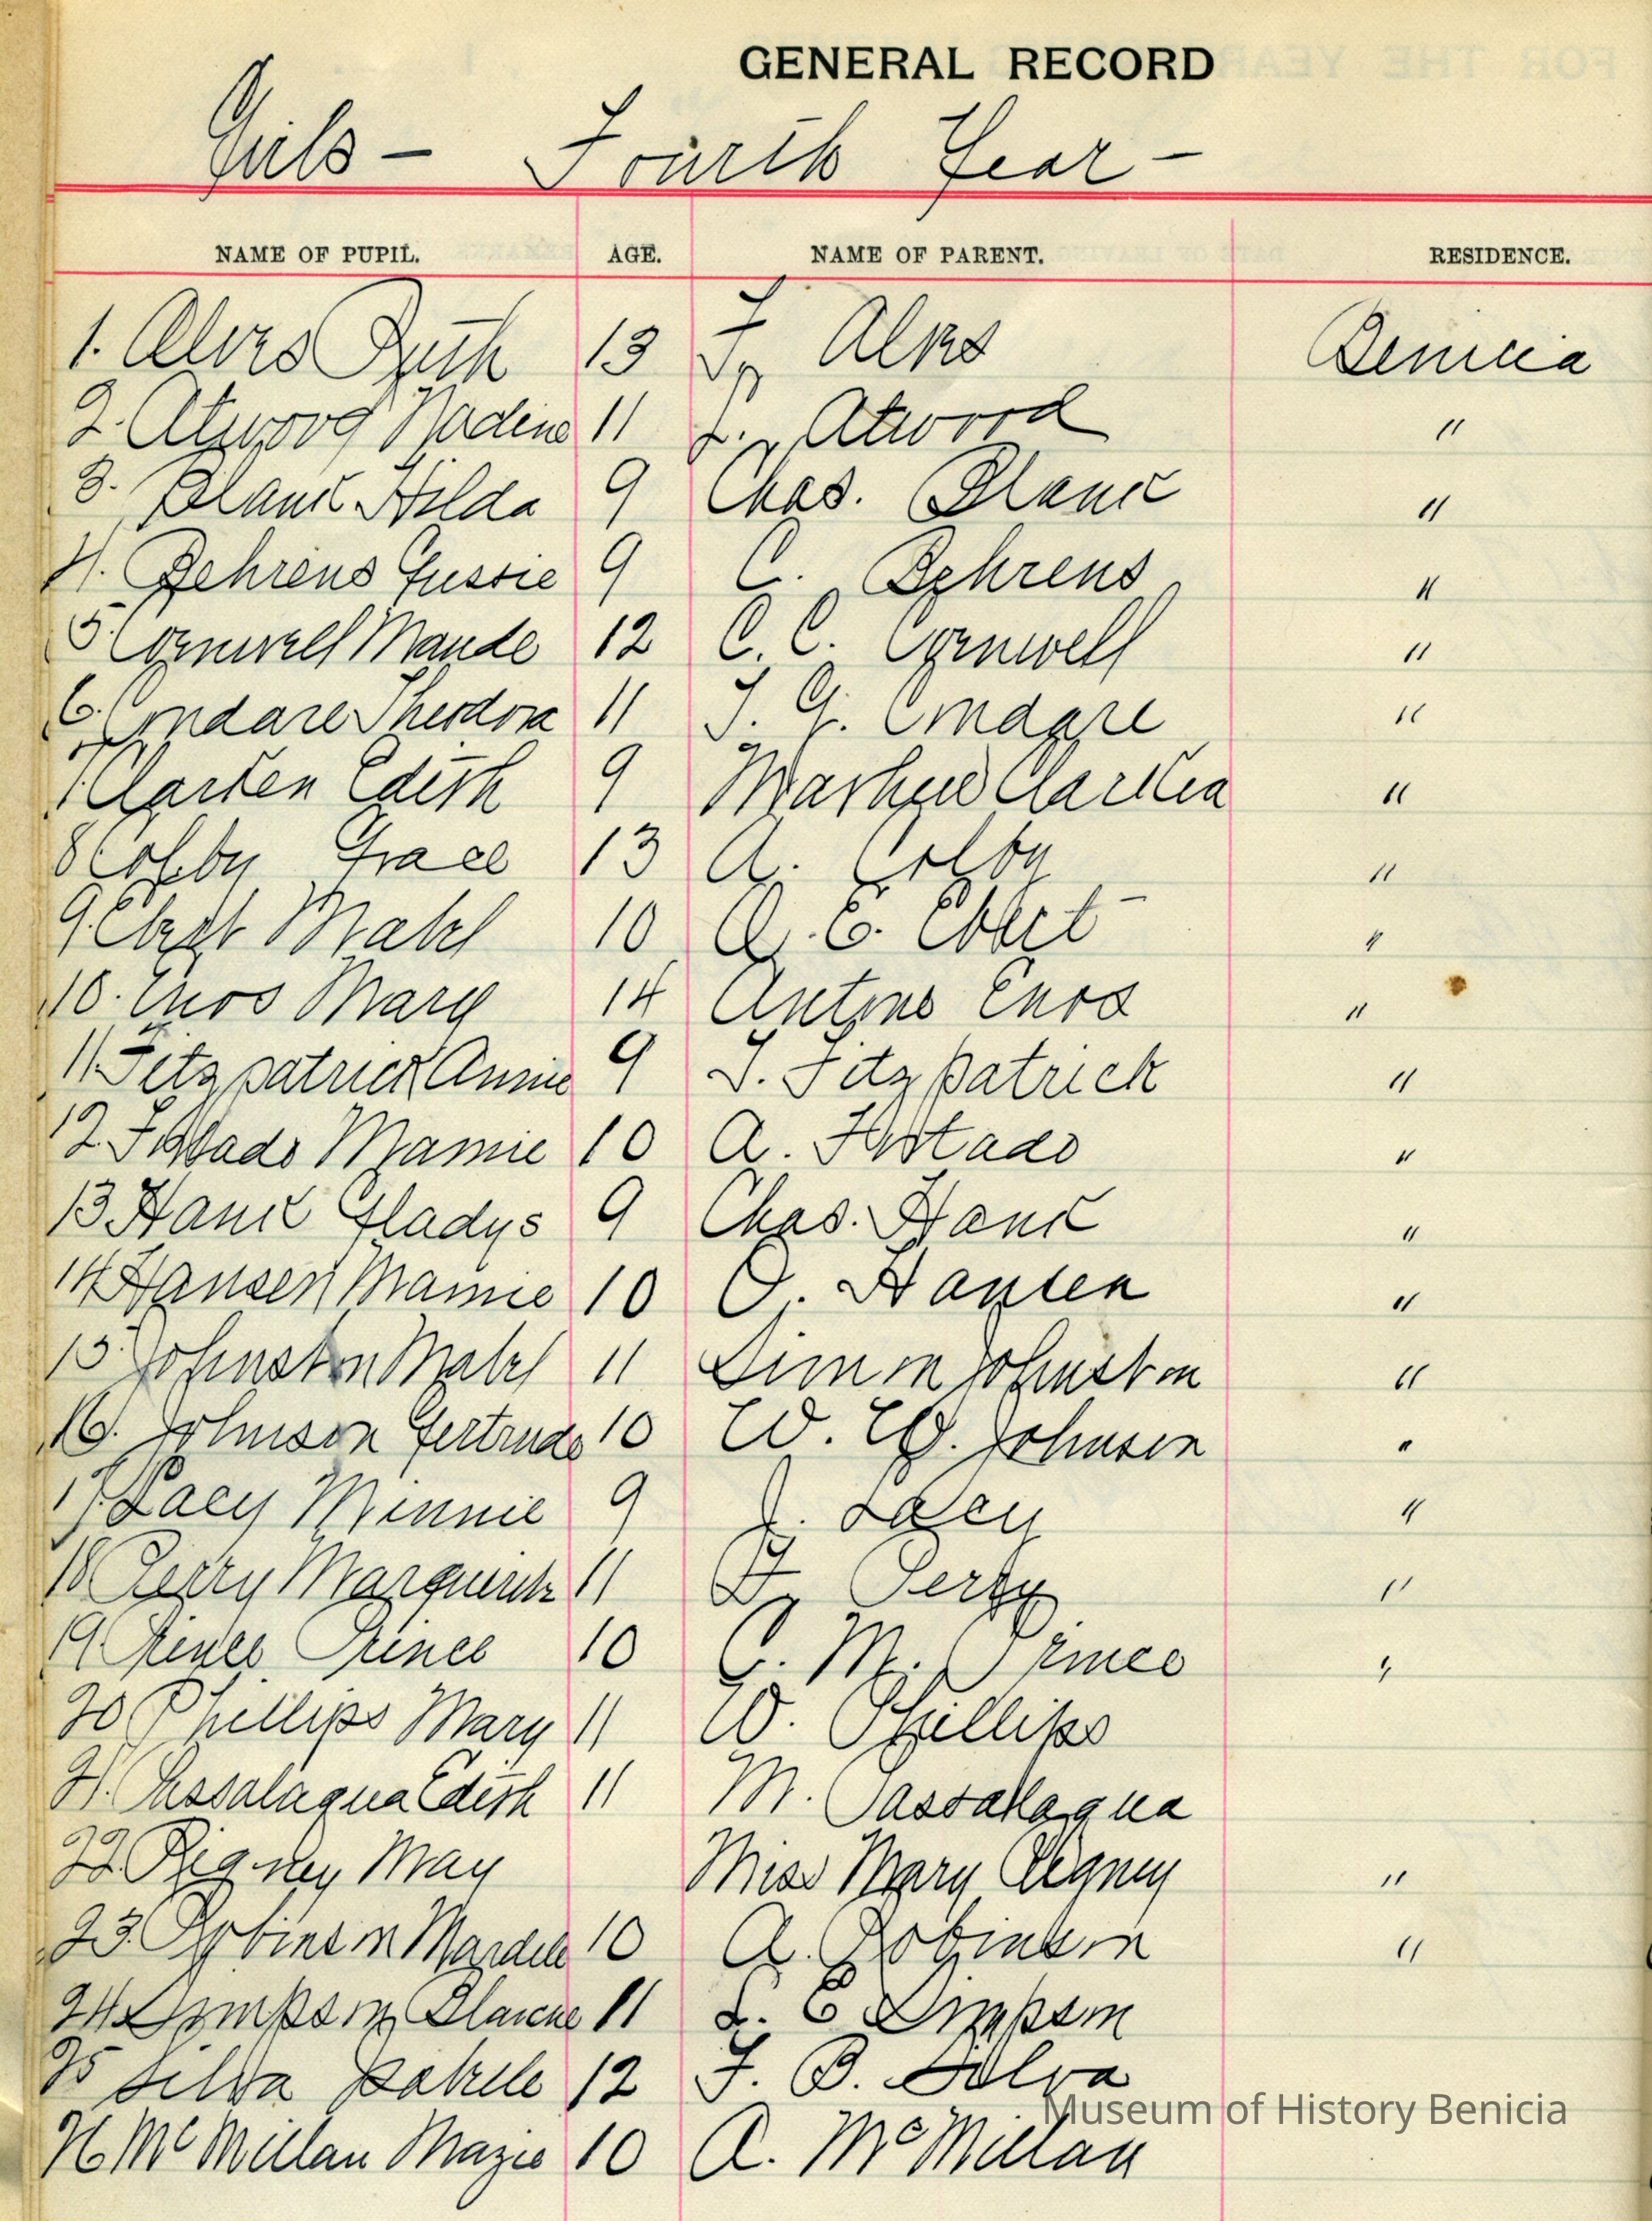 GENERAL RECORD
Girls - Fourth Year -
NAME OF PUPIL. AGE. NAME OF PARENT. RESIDENCE.
1. Alvrs Ruth 13 F. Alvrs Benicia
2. Atwood Nadine 11 Atwood "
3. Blanck Hilda 9 Chas. Blanck "
4. Behrens Gussie 9 C. Behrens "
5. Cornwell Maude 12 C. C. Cornwell "
6. Theodora 11 J. G. "
7. Carlen Edith 9 "
8 Colby Grace 13 A. Colby "
9. Ebert Mabel 10 A. E. Ebert "
10. Enos Mary 14 Antone Enos "
11 Fitzpatrick Annie 9 J. Fitzpatrick "
12. Furtado Mamie 10 A. Furtado "
13 Hanck Gladys 9 Chas. Hanck "
14 Hansen Mamie 10 O. Hansen "
15. Johnston Mabel 11 Simon Johnston "
16. Johnson Gertrude 10 W. W. Johnson "
17. Lacy Minnie 9 J. Lacy "
18 Perry Marguerite 11 F. Perry "
19. Prince 10 G. M. Prince "
20 Phillips Mary 11 W. Phillips
21. Passalaqua Edith 11 M. Passallaqua
22. Rigney May Miss Mary Rigney "
23. Robinson 10 A. Robinson "
24 Simpson Blanche 11 L. E Simpson
25 Silva Isabelle 12 F. B. Silva
26 McMillan Mazie 10 A. McMillan
Museum of History Benicia